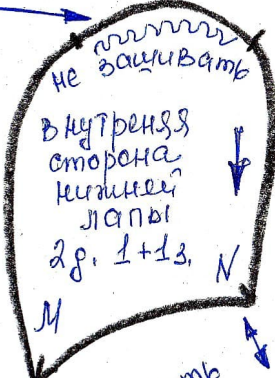 не зашивать
внутреняя
сторона
нижней
лапы
2д. 1+1з.
N
M
ть